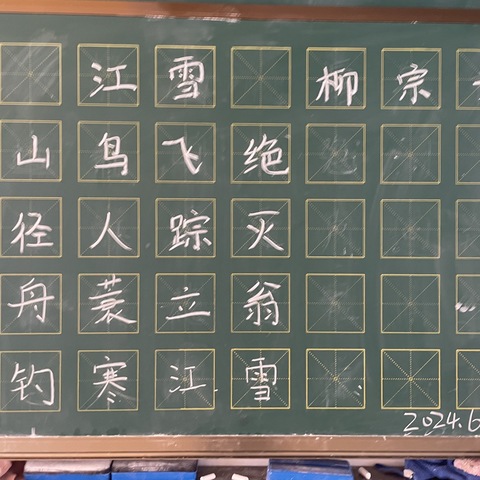 江雪 柳宗
山鸟飞绝
径人踪灭
舟蓑立翁
钓寒江雪
2024.6